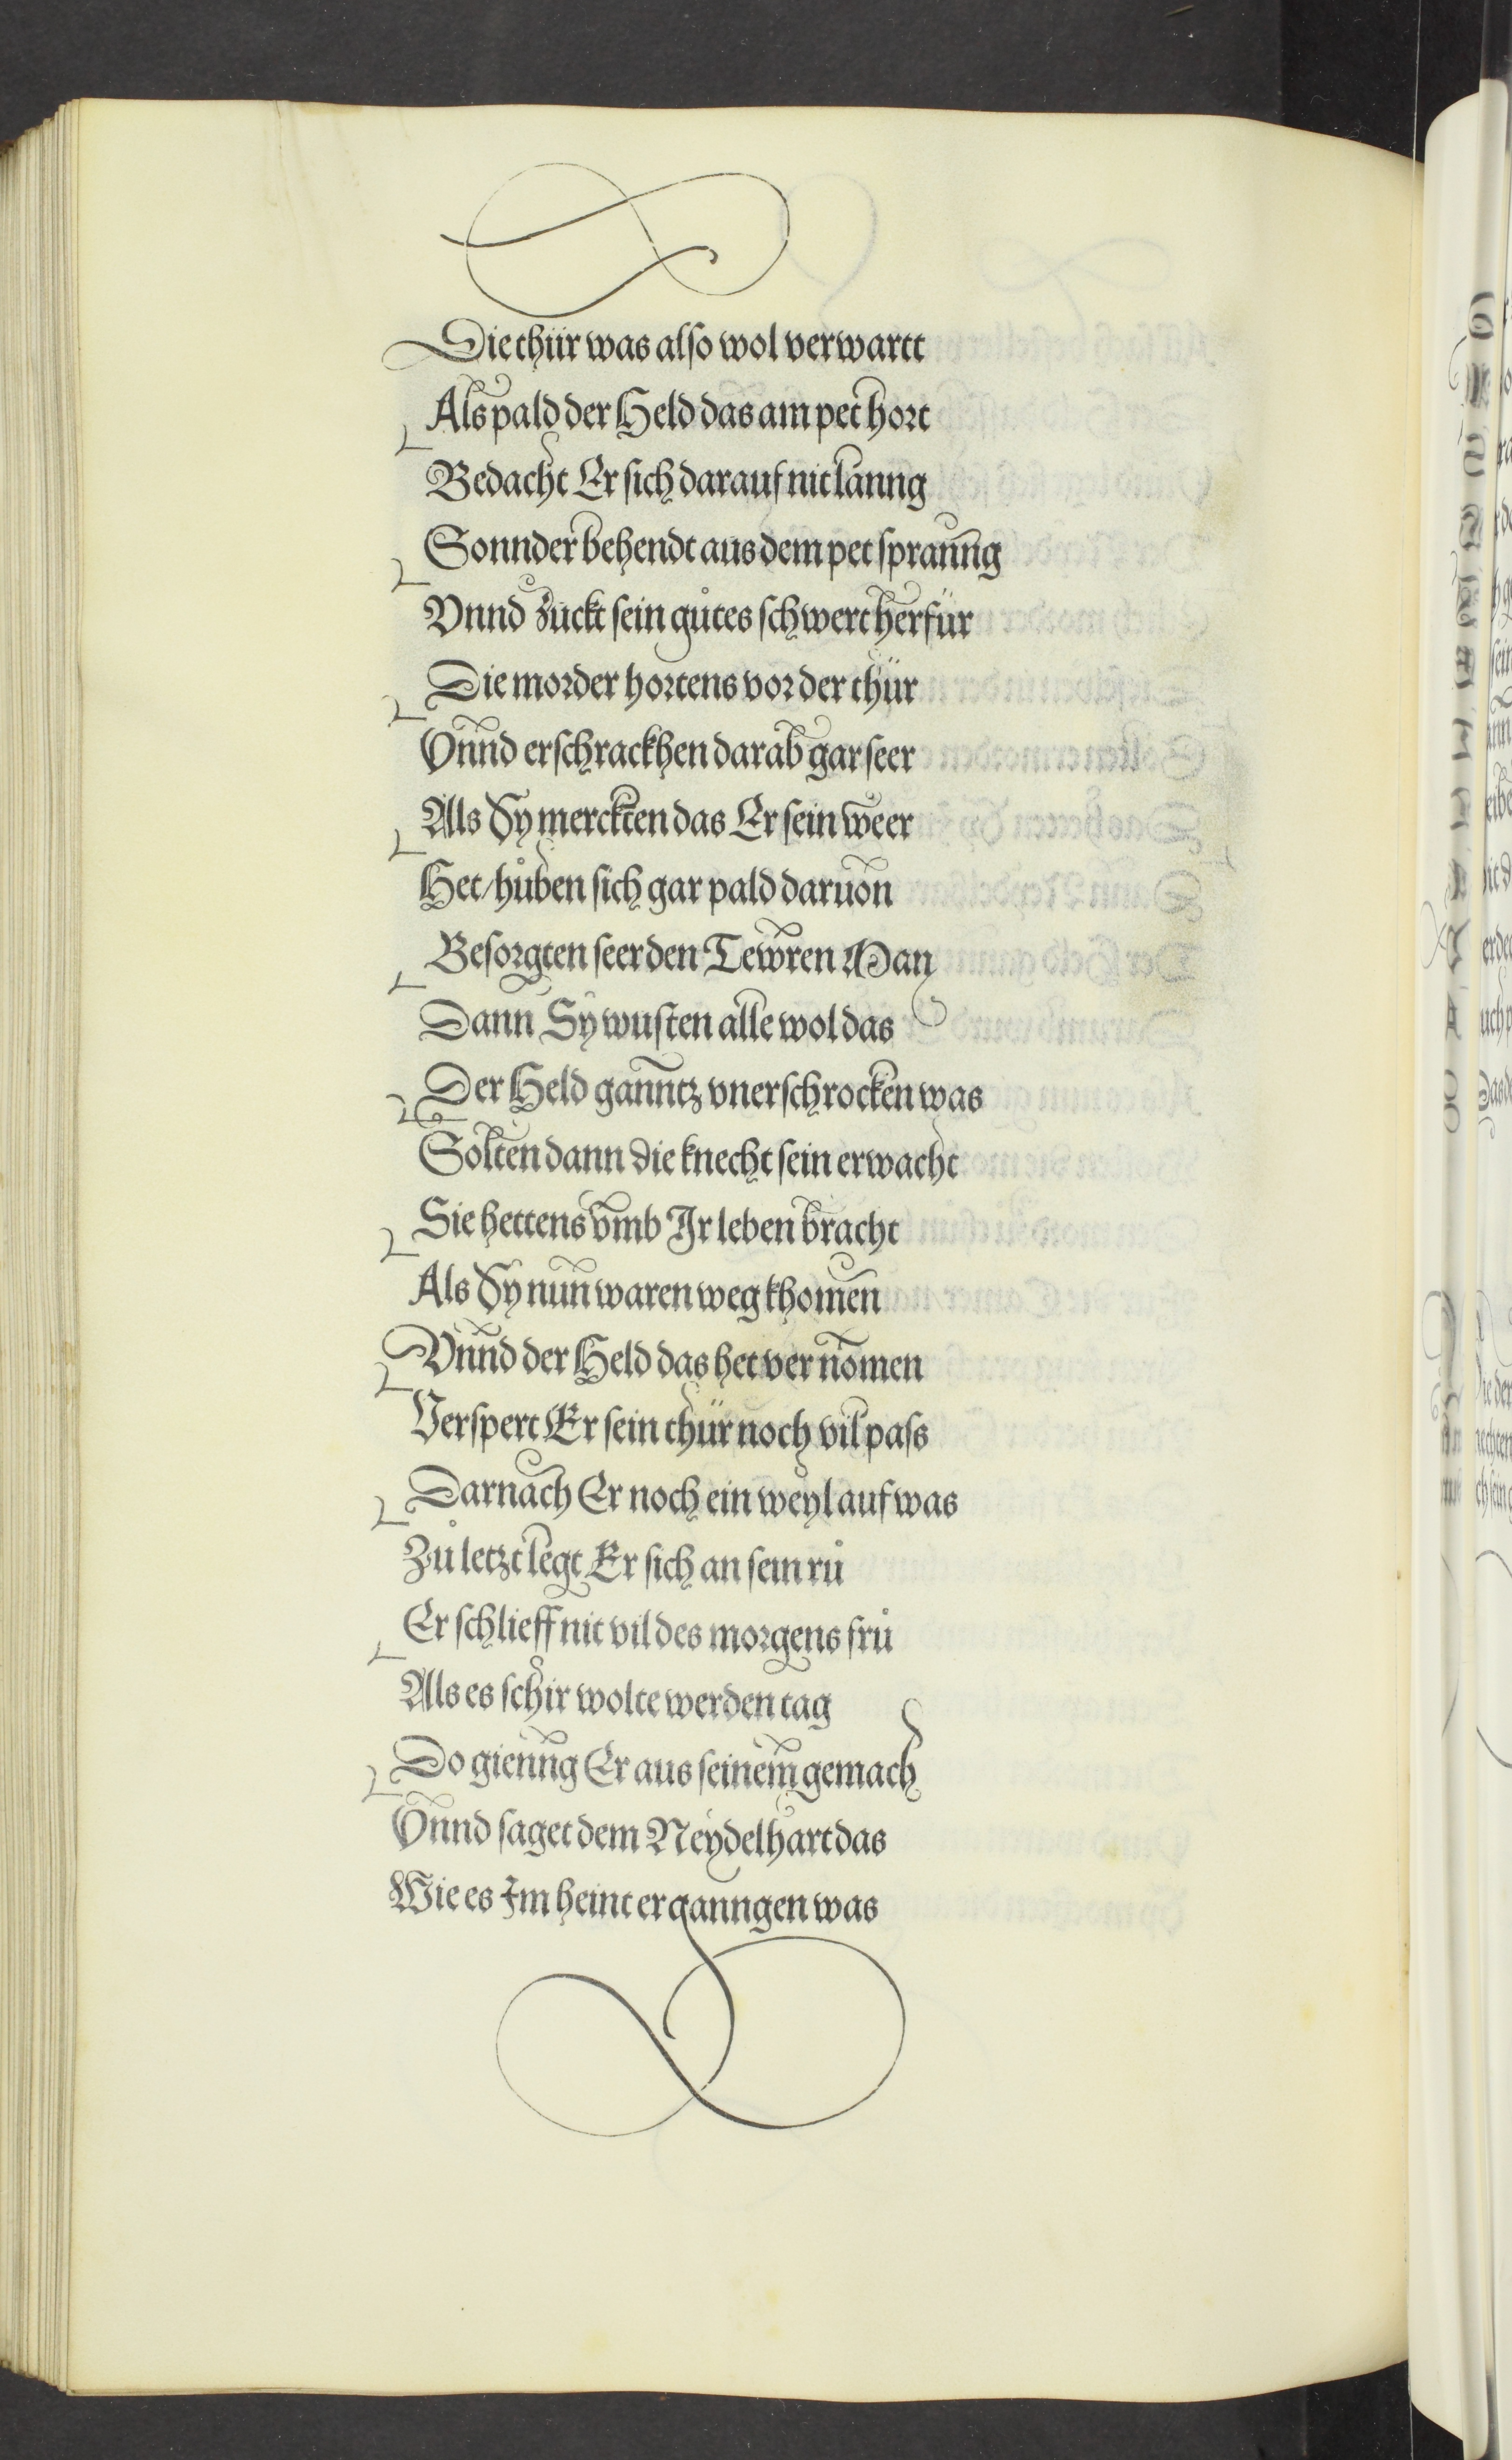 Die thür was also wol verwartt
Als pald der Held das am pet hort
Bedacht Er sich darauf nit lanng
Sonnder behendt aus dem pet spranng
Vnnd zuckt sein gůtes schwert herfür
Die morder hortens vor der thür
Vnnd erschrackhen darab gar seer
Als Sy merckten das Er sein weer
Het / hůben sich gar pald daruon
Besorgten seer den Tewren Man
Dann Sy wusten alle wol das
Der Held ganntz vnerschrocken was
Solten dann die knecht sein erwacht
Sie hettens vmb Ir leben bracht
Als Sy nun waren weg khomen
Vnnd der Held das het vernomen
Verspert Er sein thür noch vil pass
Darnach Er noch ein weyl auf was
Zů letzt legt Er sich an sein rů
Er schlieff nit vil des morgens frů
Als es schir wolte werden tag
Do gienng Er aus seinem gemach
Vnnd saget dem Neydelhart das
Wie es Im heint erganngen was